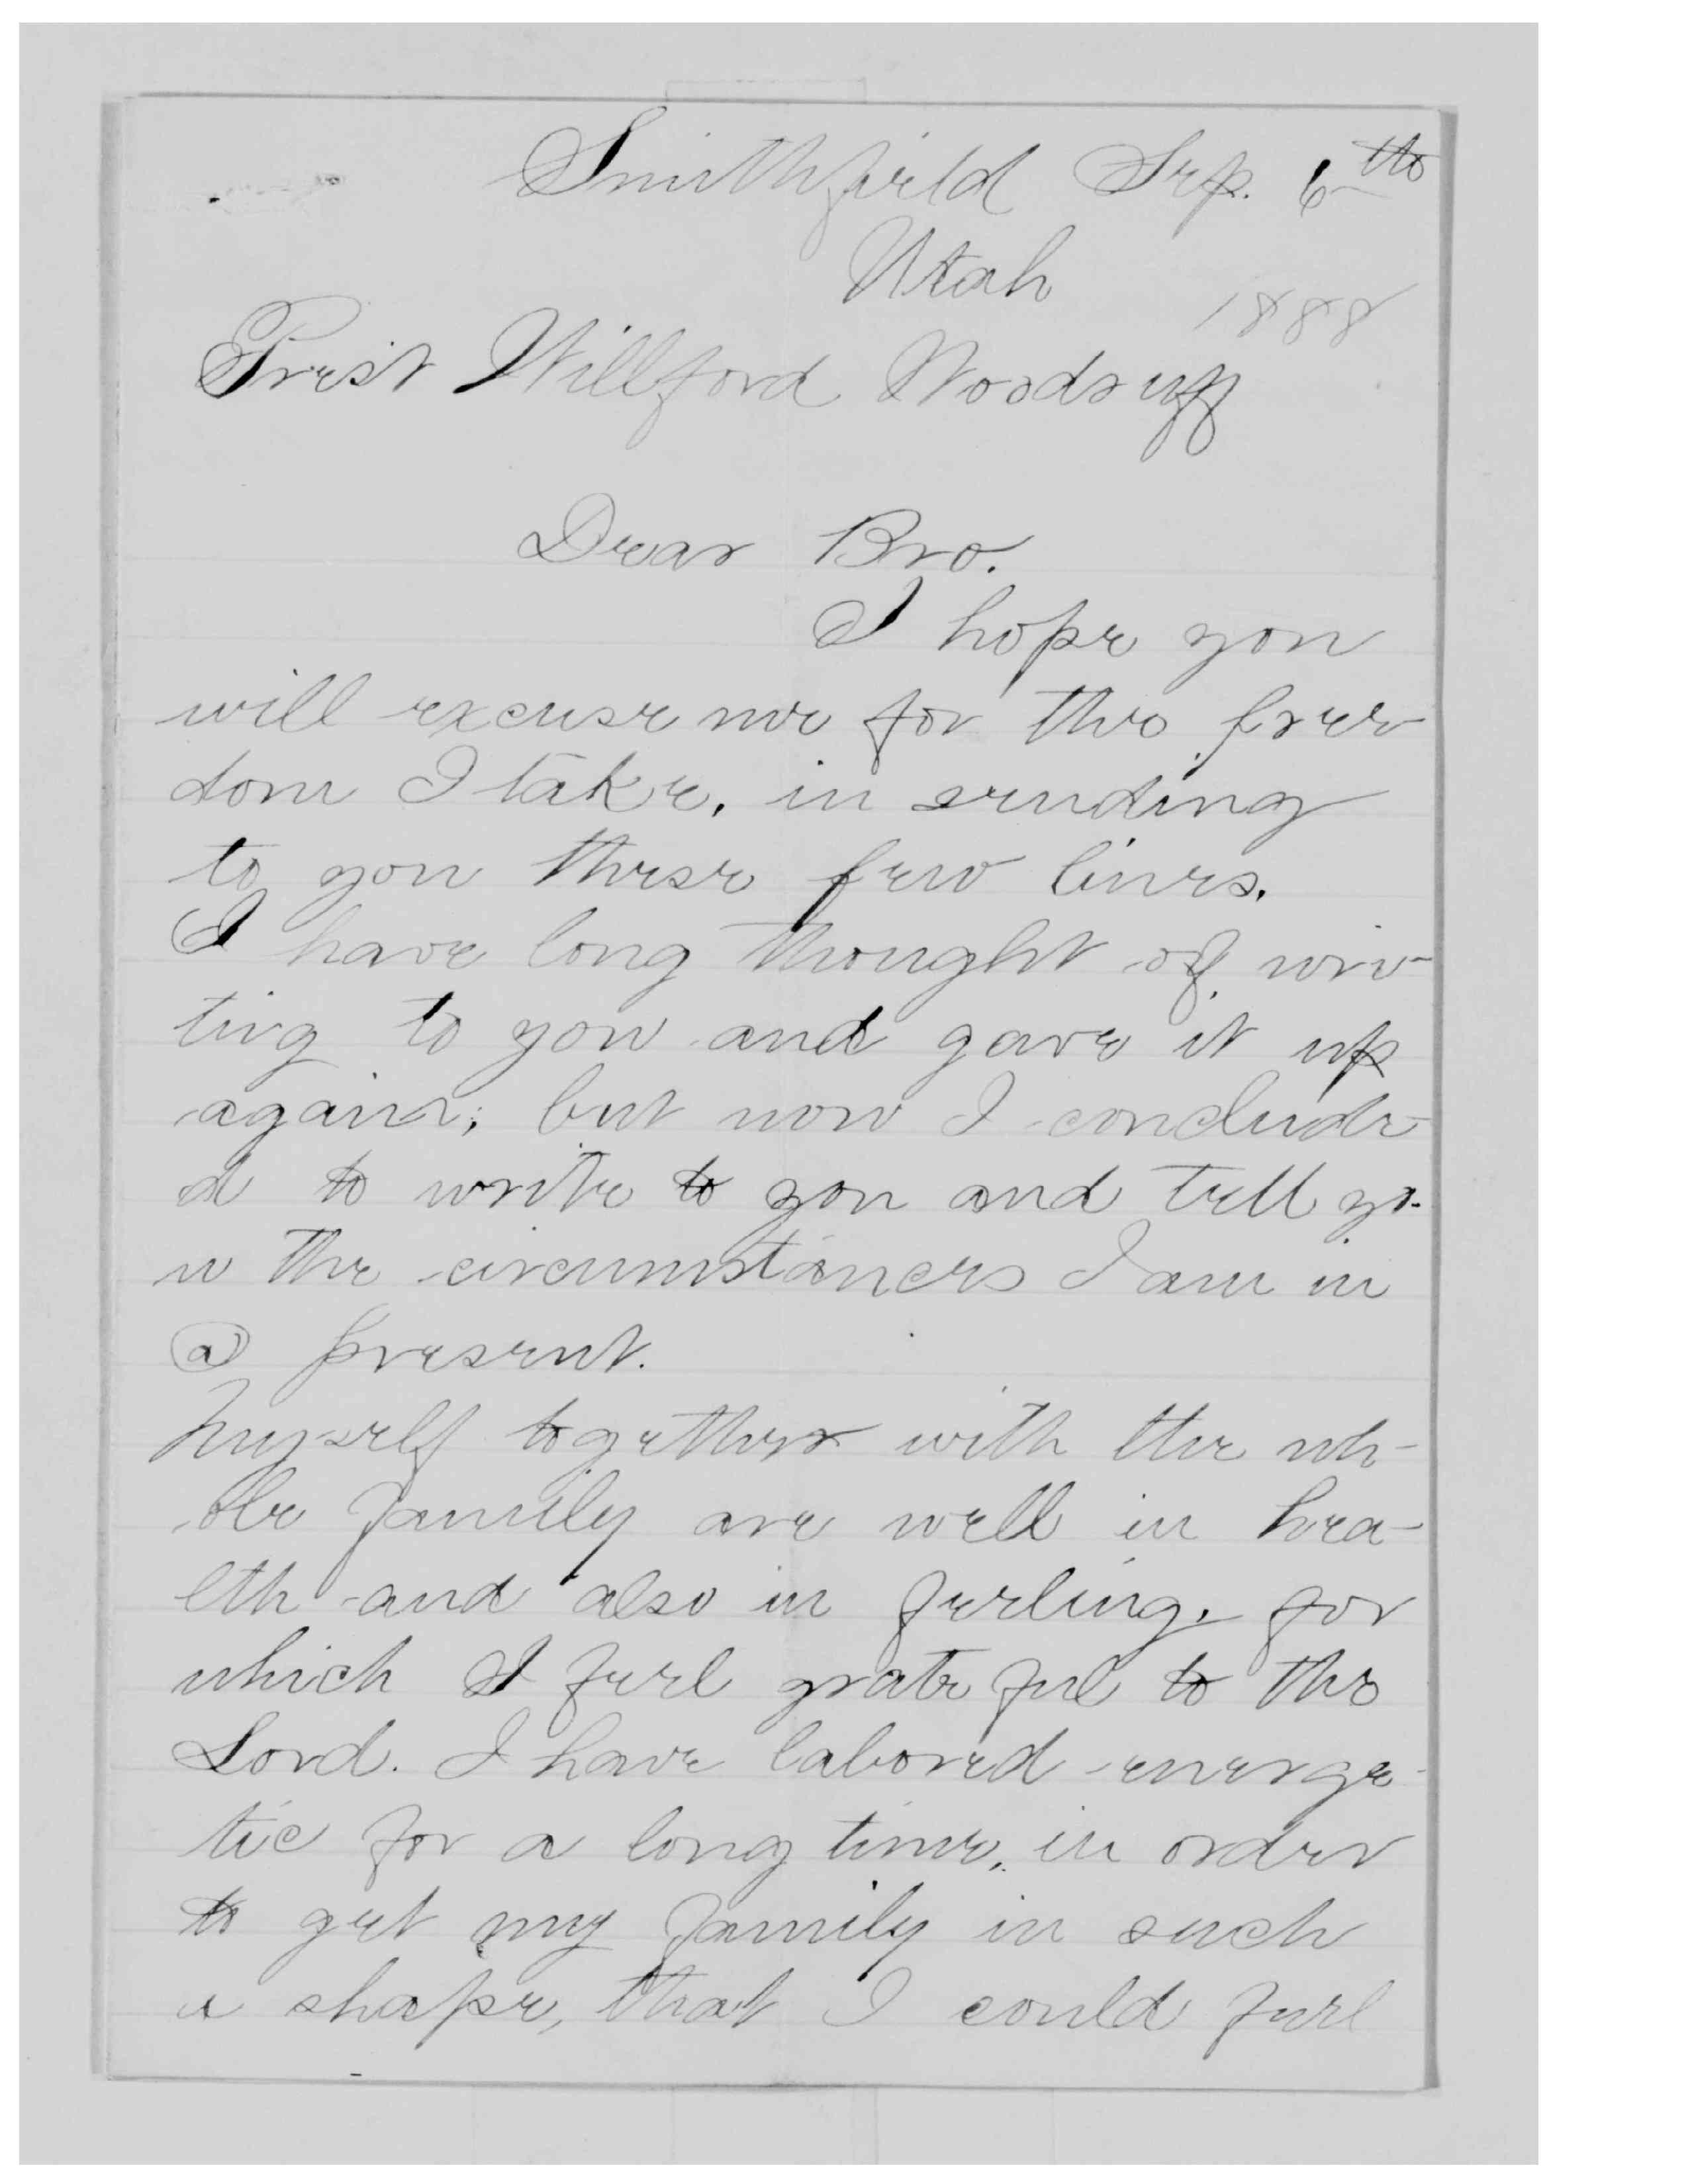 Smithfield Sep. 6th
Utah
1888
Prest Willford Woodruff
Dear Bro.
I hope you
will excuse me for the free
dom I take, in sending
to you these few lines.
I have long thought of wri-
ting to you and gave it up
again; but now I conclude-
d to write to you and tell yo-
u the circumstances I am in
@ present.
Myself together with the wh-
ole family are well in hea-
lth and also in feeling, for
which I feel grateful to the
Lord. I have labored energe-
tic for a long time, in order
to get my family in such
a shape, that I could feel